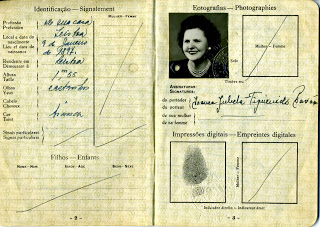 Identificação — Signalement
MULHER - FEMME
Profissão
Profession
de sua casa
Local e data do
nascimento
Lieu et date de
naissance
Lisboa
9 de Janeiro
de 1897
Residente em
Demeurant à
Lisboa
Altura
Taille
1m 55
Olhos
Yeux
castanhos
Cabelo
Cheveux
Cor
Teint
branca
Sinais particulares
Signes particuliers
Filhos — Enfants
NOME - NOM
IDADE - AGE
SEXO - SEXE
- 2 -
Fotografias — Photographies
Mulher - Femme
Selo
Timbre sec
ASSINATURAS
SIGNATURES:
do portador
du porteur
de sua mulher
de sa femme
Julieta Figueiredo
Impressões digitais — Empreintes digitales
Mulher - Femme
Indicador direito - Indicateur droit
- 3 -